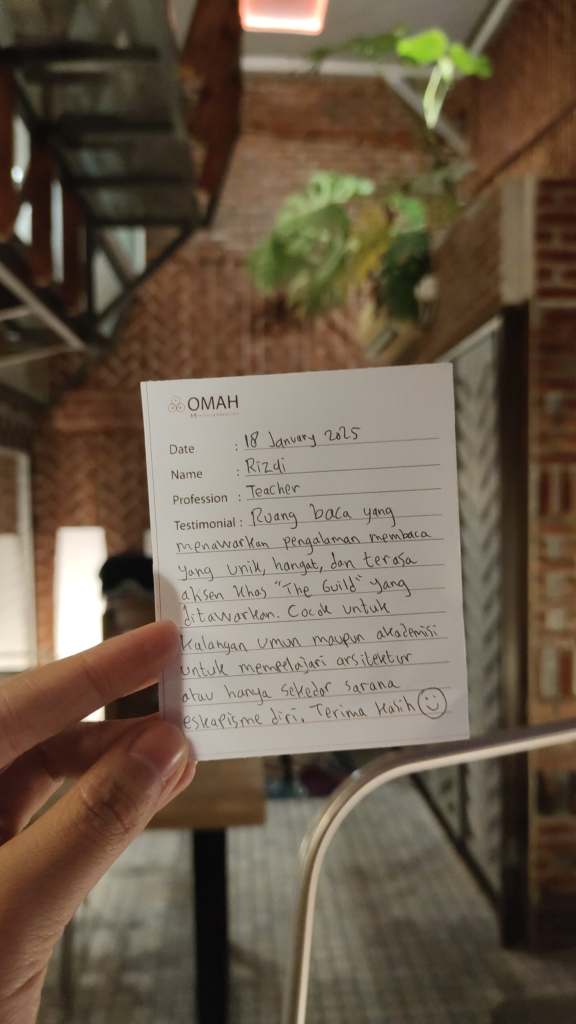 OMAH
Date : 18 January 2025
Name : Rizdi
Profession : Teacher
Testimonial : Ruang baca yang
menawarkan pengalaman membaca
yang unik, hangat, dan terasa
aksen khas "The Guild" yang
ditawarkan. Cocok untuk
kalangan umum maupun akademisi
untuk mempelajari arsitektur
atau hanya sekedar sarana
eskapisme diri. Terima kasih